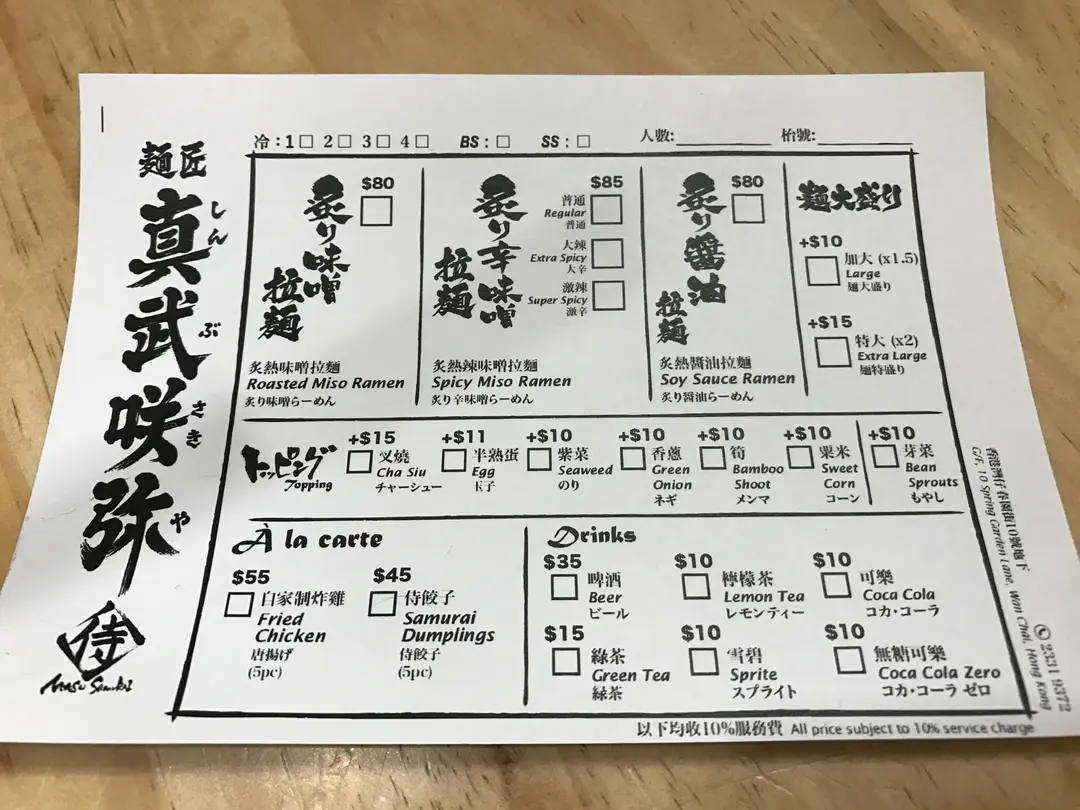 麵匠
真武咲弥
しんぶさきや
侍
冷：1□ 2□ 3□ 4□ BS：□ SS：□ 人數:________ 枱號:________
炙り味噌拉麵
$80
炙熱味噌拉麵
Roasted Miso Ramen
炙り味噌らーめん
炙り辛味噌拉麵
$85
普通
Regular
普通
大辣
Extra Spicy
大辛
激辣
Super Spicy
激辛
炙熱辣味噌拉麵
Spicy Miso Ramen
炙り辛味噌らーめん
炙り醬油拉麵
$80
炙熱醬油拉麵
Soy Sauce Ramen
炙り醤油らーめん
麵大盛り
+$10
加大 (x1.5)
Large
麵大盛り
+$15
特大 (x2)
Extra Large
麵特盛り
トッピング
Topping
+$15
叉燒
Cha Siu
チャーシュー
+$11
半熟蛋
Egg
玉子
+$10
紫菜
Seaweed
のり
+$10
香蔥
Green
Onion
ネギ
+$10
筍
Bamboo
Shoot
メンマ
+$10
粟米
Sweet
Corn
コーン
+$10
芽菜
Bean
Sprouts
もやし
À la carte
$55
自家制炸雞
Fried
Chicken
唐揚げ
(5pc)
$45
侍餃子
Samurai
Dumplings
侍餃子
(5pc)
Drinks
$35
啤酒
Beer
ビール
$10
檸檬茶
Lemon Tea
レモンティー
$10
可樂
Coca Cola
コカ・コーラ
$15
綠茶
Green Tea
緑茶
$10
雪碧
Sprite
スプライト
$10
無糖可樂
Coca Cola Zero
コカ・コーラ ゼロ
香港灣仔春園街10號地下
G/F, 10 Spring Garden Lane, Wan Chai, Hong Kong
2331 9372
以下均收10%服務費 All price subject to 10% service charge